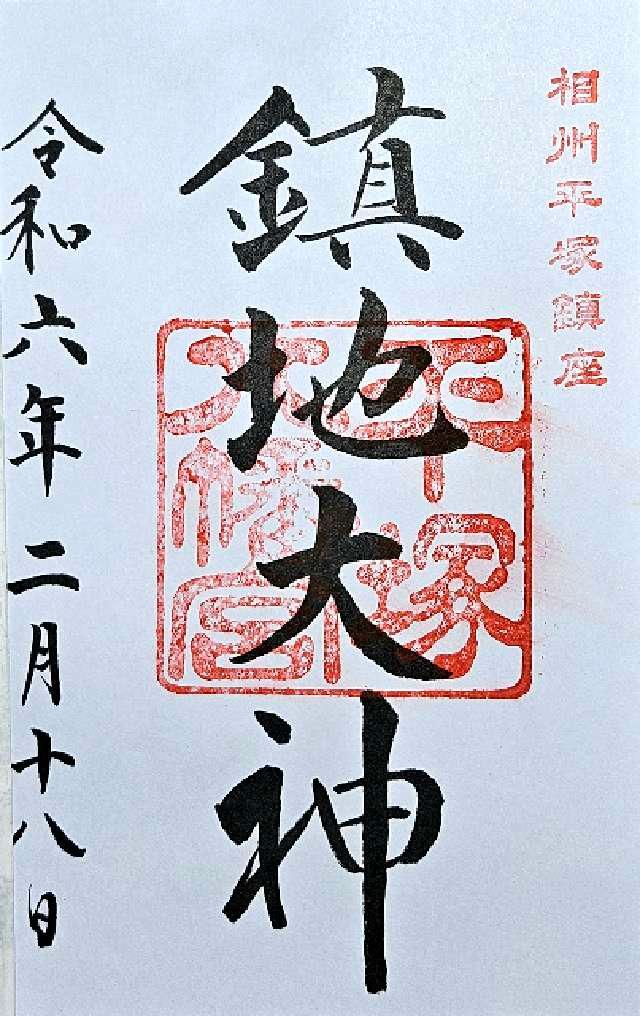 相州平塚鎮座
鎮地大神
平塚
八幡宮
令和六年二月十八日